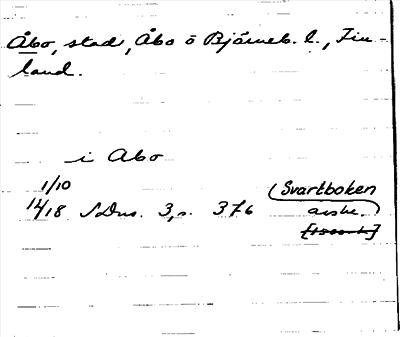 Åbo, stad, Åbo o Björneb. l., Fin-
land.
i Abo
1/10
14/18 SDns. 3, s. 376 (Svartboken
avskr.)